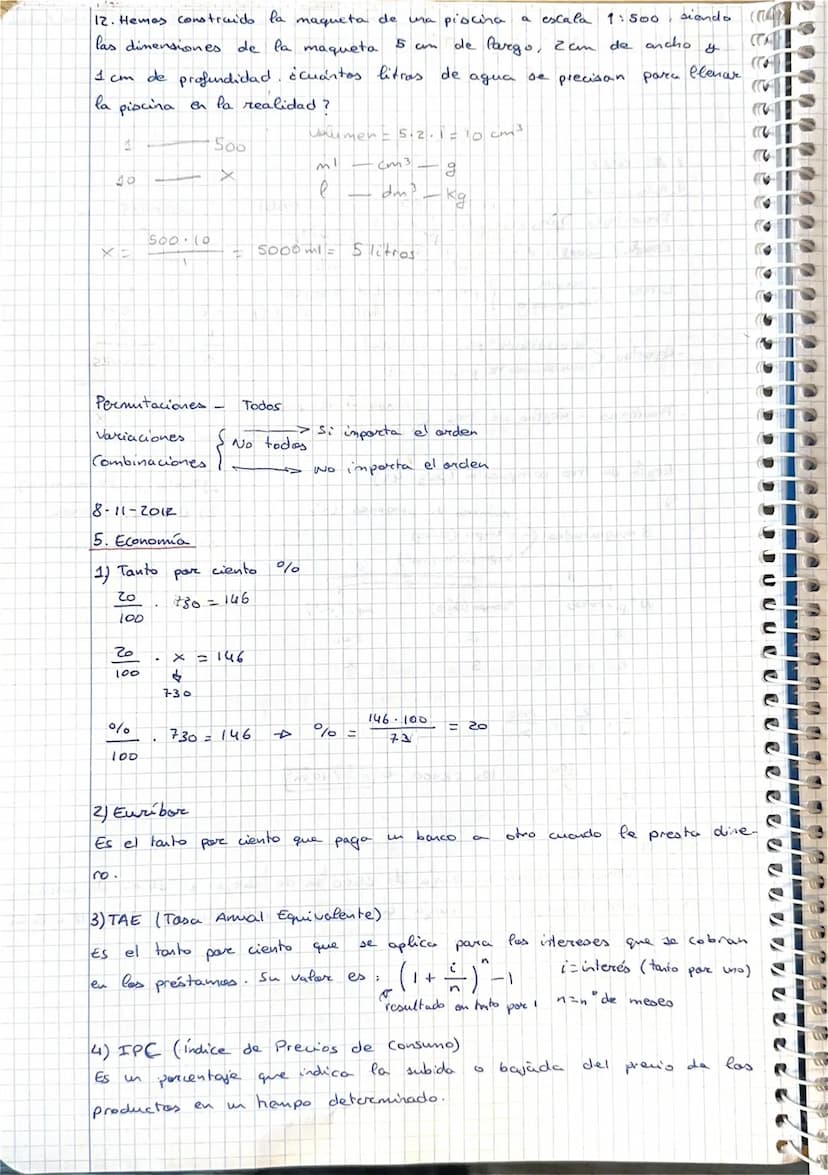 12. Hemos construido la maqueta de una piscina a escala 1:500, siendo
las dimensiones de la maqueta 5 cm de largo, 2 cm de ancho y
1 cm de profundidad. ¿cuántos litros de agua se precisan para llenar
la piscina en la realidad?
1 — 500 volumen = 5·2·1 = 10 cm³
10 — x ml — cm³ — g
l — dm³ — kg
x = 500·10 / 1 = 5000 ml = 5 litros
Permutaciones - Todos
Variaciones { No todos → Si importa el orden
Combinaciones → No importa el orden
8-11-2012
5. Economía
1) Tanto por ciento %
20/100 · 730 = 146
20/100 · x = 146
730
%/100 · 730 = 146 → % = 146·100 / 73 = 20
2) Euríbor
Es el tanto por ciento que paga un banco a otro cuando le presta dine-
ro.
3) TAE (Tasa Anual Equivalente)
Es el tanto por ciento que se aplica para los intereses que se cobran
en los préstamos. Su valor es: (1 + i/n)ⁿ - 1 i = interés (tanto por uno)
resultado en tanto por 1 n = nº de meses
4) IPC (Índice de Precios de Consumo)
Es un porcentaje que indica la subida o bajada del precio de los
productos en un tiempo determinado.